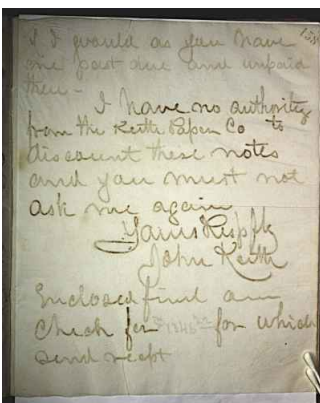 158
I I would as you have
one past due and unpaid
then -
I have no authority
from the Keith Paper Co to
discount these notes
and you must not
ask me again
Yours Respfly
John Keith
Enclosed find am
check for for which
send receipt